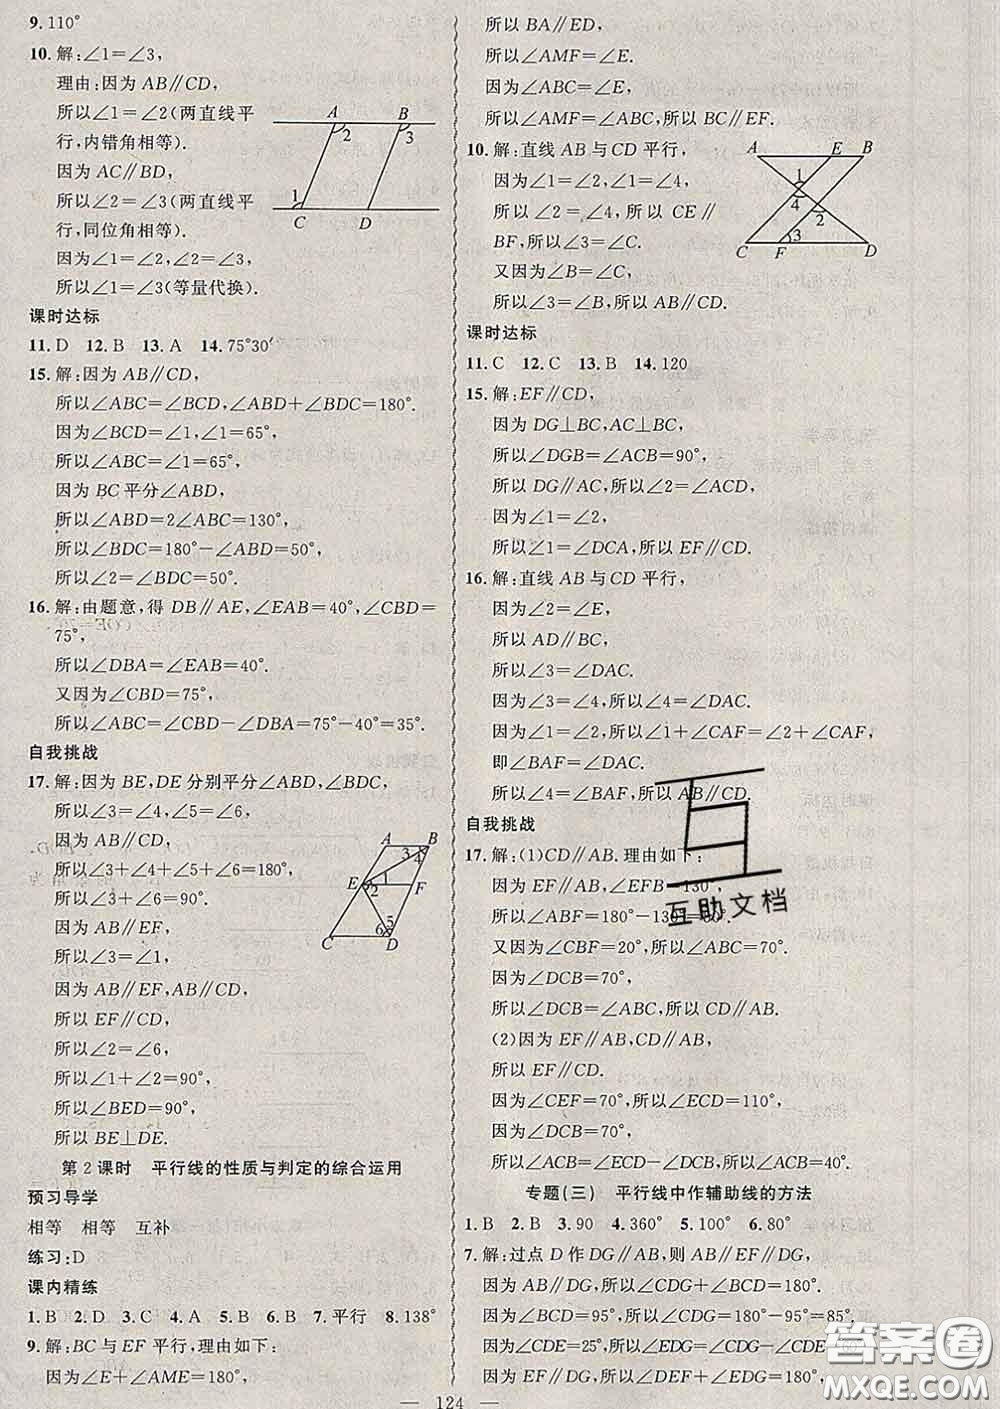 9.110°
10.解:∠1=∠3,
理由:因为 AB∥CD,
所以∠1=∠2(两直线平
行,内错角相等).
因为 AC∥BD,
所以∠2=∠3(两直线平
行,同位角相等).
因为∠1=∠2,∠2=∠3,
所以∠1=∠3(等量代换).
A B
2 3
1
C D
课时达标
11.D 12.B 13.A 14.75°30′
15.解:因为 AB∥CD,
所以∠ABC=∠BCD,∠ABD+∠BDC=180°.
因为∠BCD=∠1,∠1=65°,
所以∠ABC=∠1=65°.
因为 BC 平分∠ABD,
所以∠ABD=2∠ABC=130°,
所以∠BDC=180°-∠ABD=50°,
所以∠2=∠BDC=50°.
16.解:由题意,得 DB∥AE,∠EAB=40°,∠CBD=
75°,
所以∠DBA=∠EAB=40°.
又因为∠CBD=75°,
所以∠ABC=∠CBD-∠DBA=75°-40°=35°.
自我挑战
17.解:因为 BE,DE 分别平分∠ABD,∠BDC,
所以∠3=∠4,∠5=∠6,
因为 AB∥CD,
所以∠3+∠4+∠5+∠6=180°,
所以∠3+∠6=90°.
因为 AB∥EF,
所以∠3=∠1,
因为 AB∥EF,AB∥CD,
所以 EF∥CD,
所以∠2=∠6,
所以∠1+∠2=90°,
所以∠BED=90°,
所以 BE⊥DE.
A B
3 4
E 1 F
2
5
6
C D
第 2 课时 平行线的性质与判定的综合运用
预习导学
相等 相等 互补
练习:D
课内精练
1.B 2.D 3.C 4.A 5.B 6.B 7.平行 8.138°
9.解:BC 与 EF 平行,理由如下:
因为∠E+∠AME=180°,
所以 BA∥ED,
所以∠AMF=∠E.
因为∠ABC=∠E,
所以∠AMF=∠ABC,所以 BC∥EF.
10.解:直线 AB 与 CD 平行,
因为∠1=∠2,∠1=∠4,
所以∠2=∠4,所以 CE∥
BF,所以∠3=∠C.
又因为∠B=∠C,
所以∠3=∠B,所以 AB∥CD.
A E B
1
4
2
3
C F D
课时达标
11.C 12.C 13.B 14.120
15.解:EF∥CD,
因为 DG⊥BC,AC⊥BC,
所以∠DGB=∠ACB=90°,
所以 DG∥AC,所以∠2=∠ACD,
因为∠1=∠2,
所以∠1=∠DCA,所以 EF∥CD.
16.解:直线 AB 与 CD 平行,
因为∠2=∠E,
所以 AD∥BC,
所以∠3=∠DAC.
因为∠3=∠4,所以∠4=∠DAC.
因为∠1=∠2,所以∠1+∠CAF=∠2+∠CAF,
即∠BAF=∠DAC.
所以∠4=∠BAF,所以 AB∥CD.
自我挑战
17.解:(1)CD∥AB.理由如下:
因为 EF∥AB,∠EFB=130°,
所以∠ABF=180°-130°=50°.
又因为∠CBF=20°,所以∠ABC=70°.
因为∠DCB=70°,
所以∠DCB=∠ABC,所以CD∥AB.
(2)因为 EF∥AB,CD∥AB,
所以 EF∥CD.
因为∠CEF=70°,所以∠ECD=110°,
因为∠DCB=70°,
所以∠ACB=∠ECD-∠DCB=40°.
专题(三) 平行线中作辅助线的方法
1.B 2.B 3.90 4.360° 5.100° 6.80°
7.解:过点 D 作 DG∥AB,则 AB∥EF∥DG,
因为 AB∥DG,所以∠CDG+∠BCD=180°.
因为∠BCD=95°,所以∠CDG=180°-95°=85°.
因为∠CDE=25°,所以∠EDG=
因为 EF∥DG,所以∠DEF+∠EDG=180°,
互助文档
答案圈
MXQE.COM
— 124 —